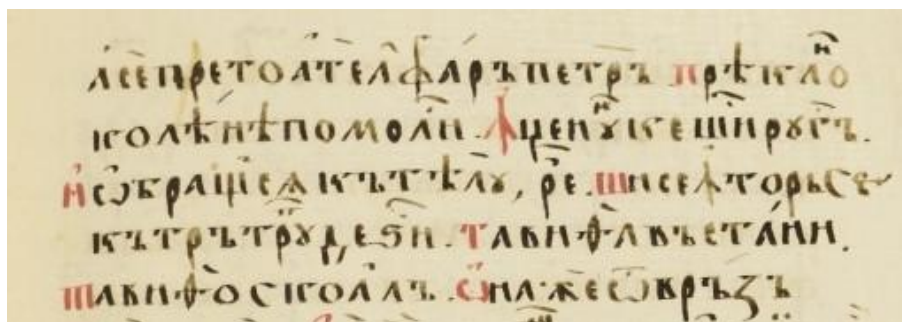 лсе претоателꙟфаръ петръ прѣклоⷩ
колѣнѣ помоли. ꙟценꙋⷩке ши ругъ.
и ѡбращїсѧ кътѣлꙋ, ре. шисеꙟторьсе
кътрътрꙋⷫ, деѕи. тавиѳа въстани.
тавиѳо скоалъ. ѡна же ѡвръзъ